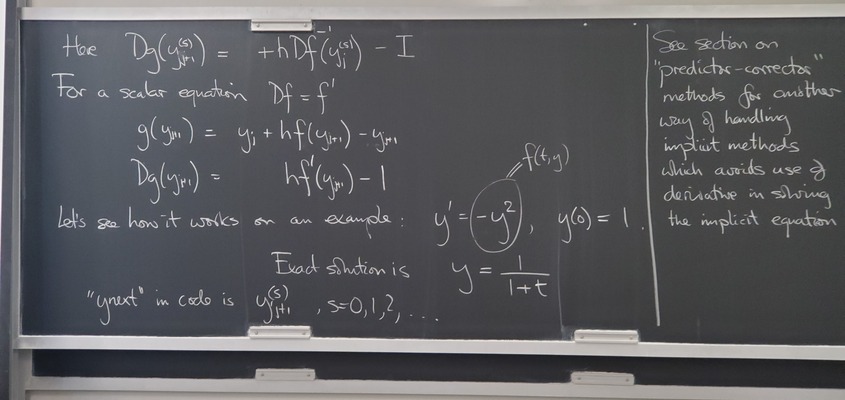 Here Dg(y_{j+1}^{(s)}) = +hDf(y_j^{(s)}) - I
For a scalar equation Df = f'
g(y_{j+1}) = y_j + hf(y_{j+1}) - y_{j+1}
Dg(y_{j+1}) = hf'(y_{j+1}) - 1
f(t,y)
Let's see how it works on an example: y' = -y², y(0) = 1.
Exact solution is y = 1/(1+t)
"ynext" in code is y_{j+1}^{(s)}, s=0,1,2,...
See section on
"predictor-corrector"
methods for another
way of handling
implicit methods
which avoids use of
derivative in solving
the implicit equation